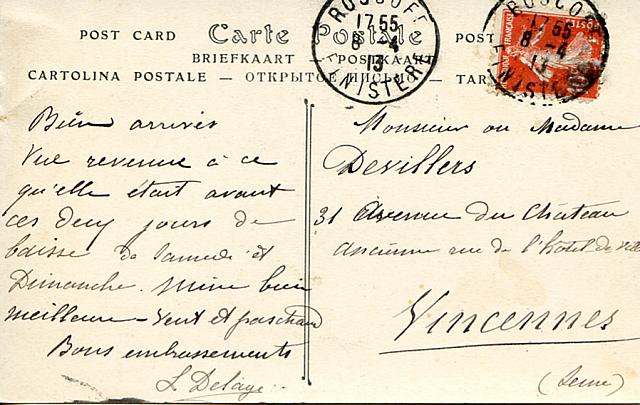 POST CARD Carte Postale POST
BRIEFKAART — POSTKAART
CARTOLINA POSTALE — ОТКРЫТОЕ ПИСЬМО — TAR
ROSCOFF
17 55
8 - 4
13
FINISTERE
ROSCOFF
17 55
8 - 4
13
FINISTERE
10
Bien arrivés
Vue revenue à ce
qu'elle était avant
ces deux jours de
baisse de Samedi et
Dimanche. Mine bien
meilleure - Vent et pas chaud
Bons embrassements
L Delage
Monsieur ou Madame
Devillers
31 Avenue du Château
ancienne rue de l'hôtel de ville
Vincennes
(Seine)